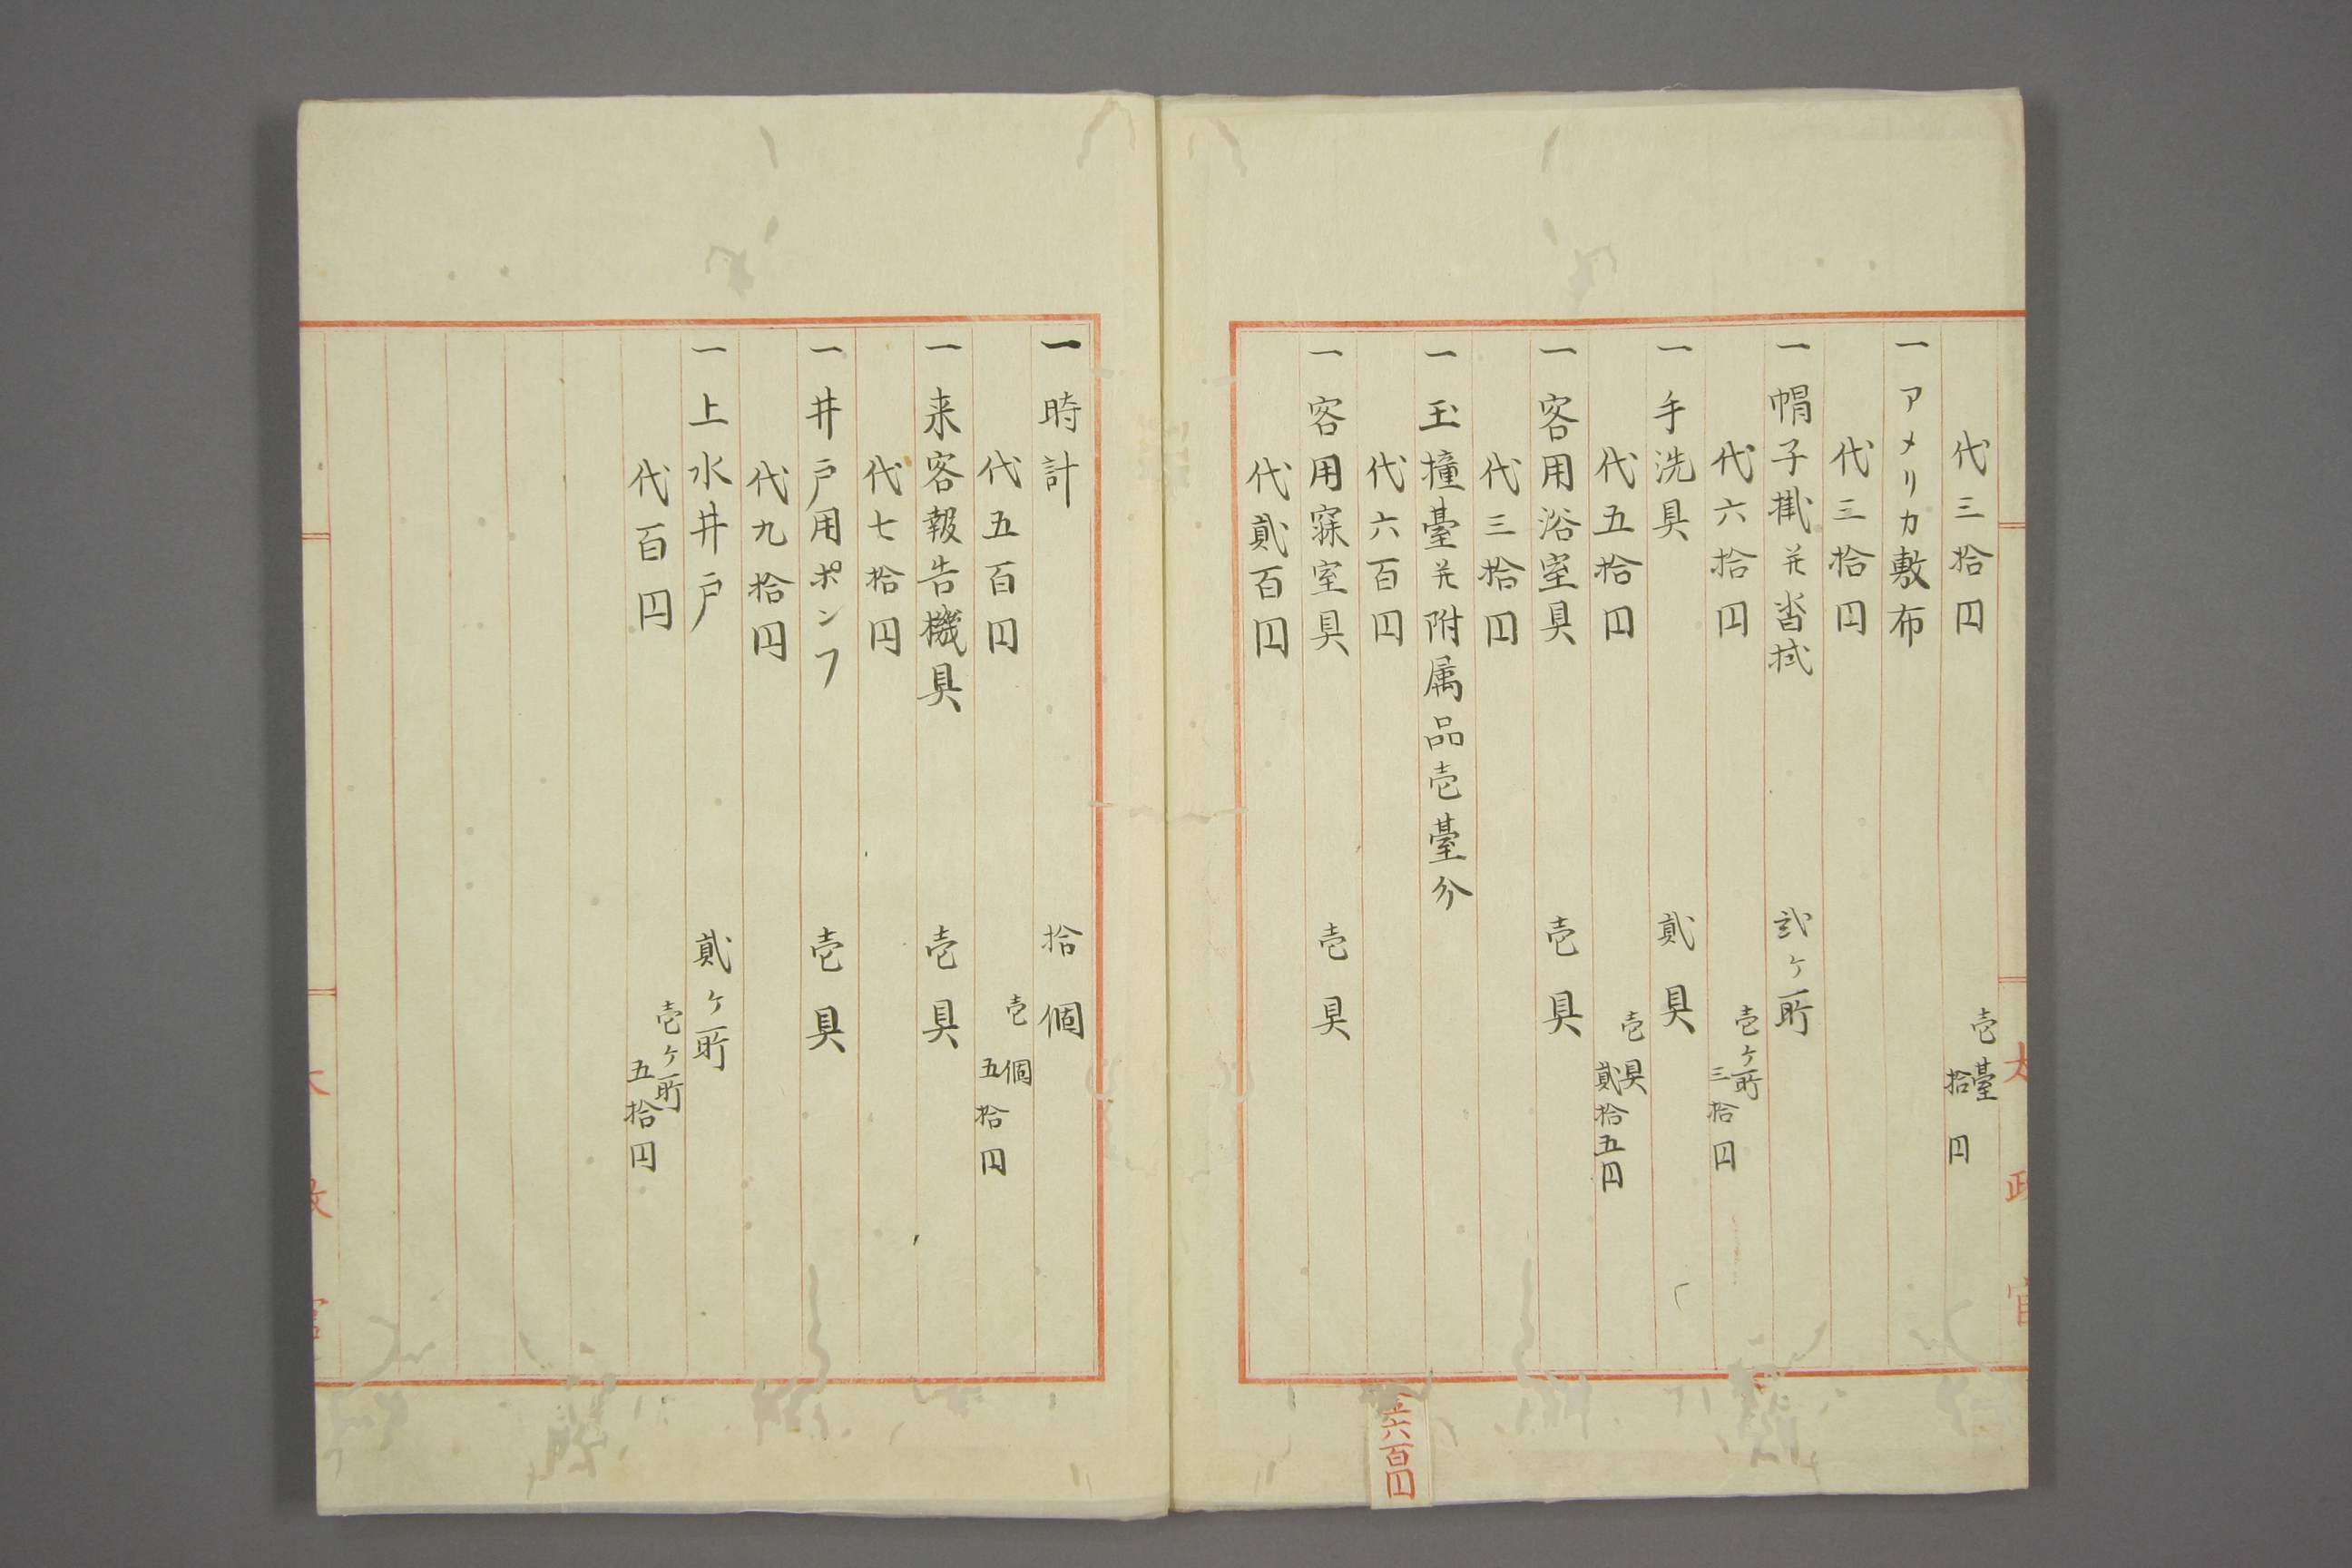 代三拾円
壱臺
拾円
一アメリカ敷布
代三拾円
一帽子掛并沓拭 弐ヶ所
代六拾円
壱ヶ所
三拾円
一手洗具 貳具
代五拾円
壱具
貳拾五円
一客用浴室具 壱具
代三拾円
一玉撞臺并附属品壱臺分
代六百円
一客用寐室具 壱具
代貳百円
六百円
太政官
一時計 拾個
代五百円
壱個
五拾円
一来客報告機具 壱具
代七拾円
一井戸用ポンフ 壱具
代九拾円
一上水井戸 貳ヶ所
代百円
壱ヶ所
五拾円